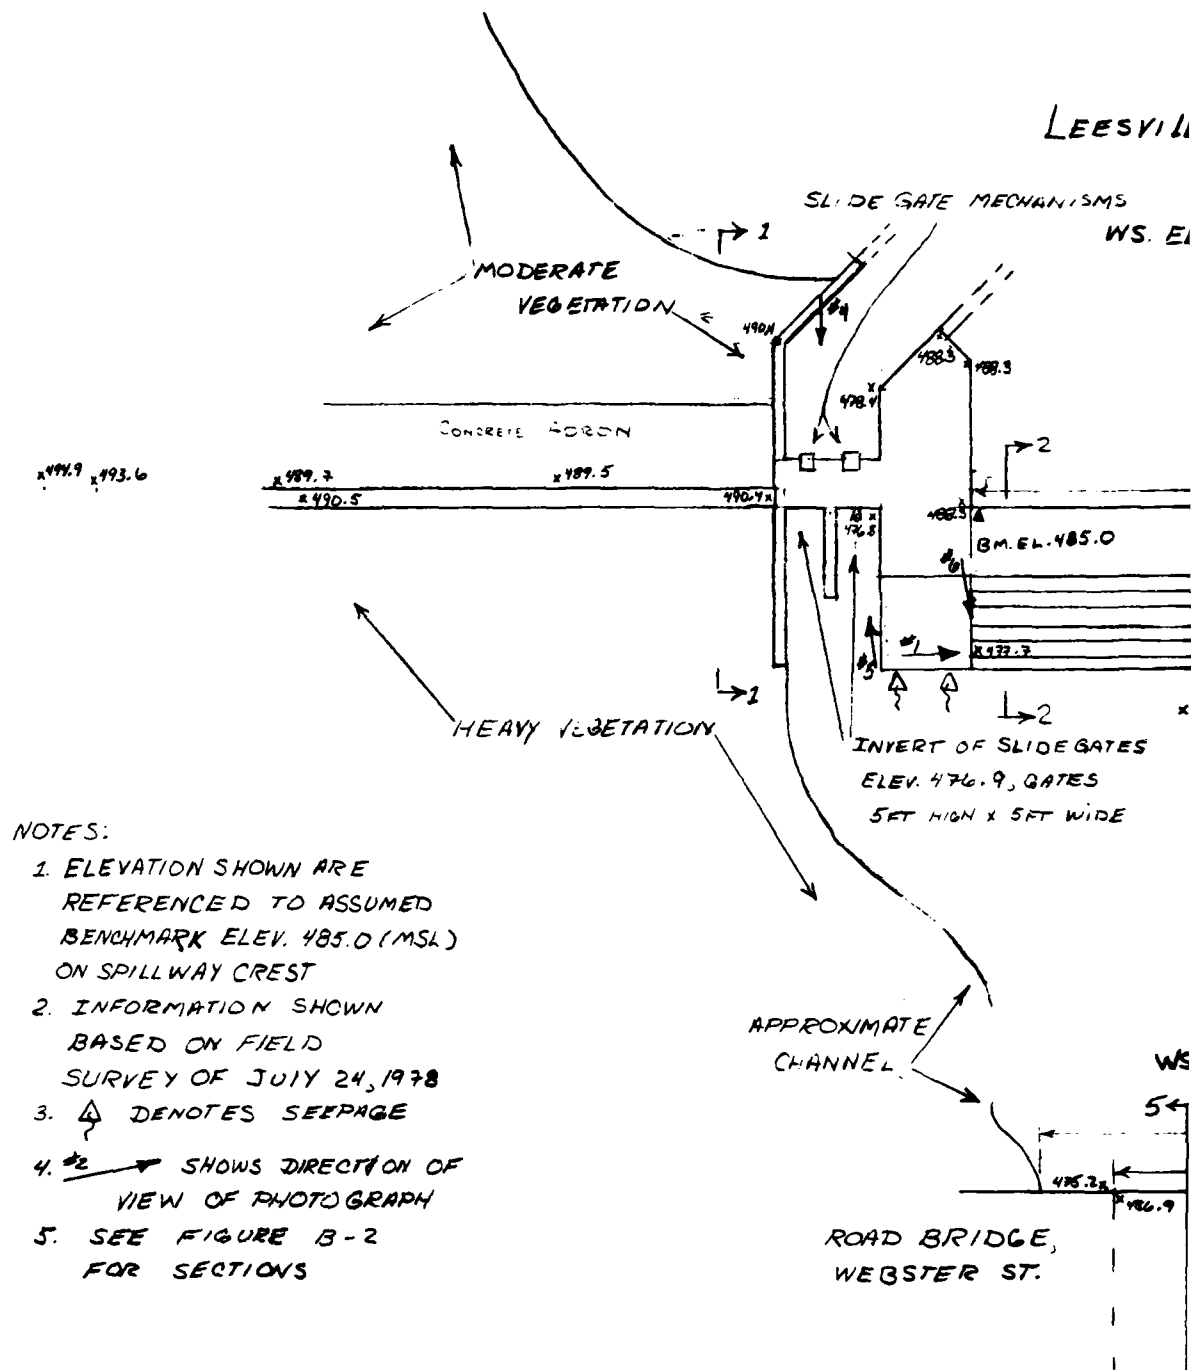 LEESVILL
SLIDE GATE MECHANISMS
WS. EL
1
MODERATE
VEGETATION
#4
490.4
488.3
488.3
478.4
CONCRETE APRON
2
494.9
493.6
489.7
489.5
490.5
490.4
476.8
488.3
BM. EL. 485.0
#6
#1
#5
477.7
1
2
HEAVY VEGETATION
INVERT OF SLIDE GATES
ELEV. 476.9, GATES
5FT HIGH x 5FT WIDE
NOTES:
1. ELEVATION SHOWN ARE
REFERENCED TO ASSUMED
BENCHMARK ELEV. 485.0 (MSL)
ON SPILLWAY CREST
2. INFORMATION SHOWN
BASED ON FIELD
SURVEY OF JULY 24, 1978
3. DENOTES SEEPAGE
4. #2 SHOWS DIRECTION OF
VIEW OF PHOTOGRAPH
5. SEE FIGURE B-2
FOR SECTIONS
APPROXIMATE
CHANNEL
WS
5
475.2
486.9
ROAD BRIDGE,
WEBSTER ST.